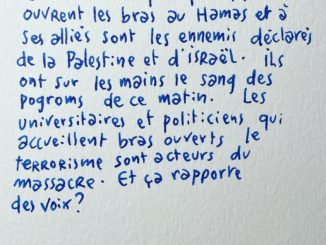 ouvrent les bras au Hamas et à
ses alliés sont les ennemis déclarés
de la Palestine et d'israël. ils
ont sur les mains le sang des
pogroms de ce matin. Les
universitaires et politiciens qui
accueillent bras ouverts le
terrorisme sont acteurs du
massacre. Et ça rapporte
des voix?